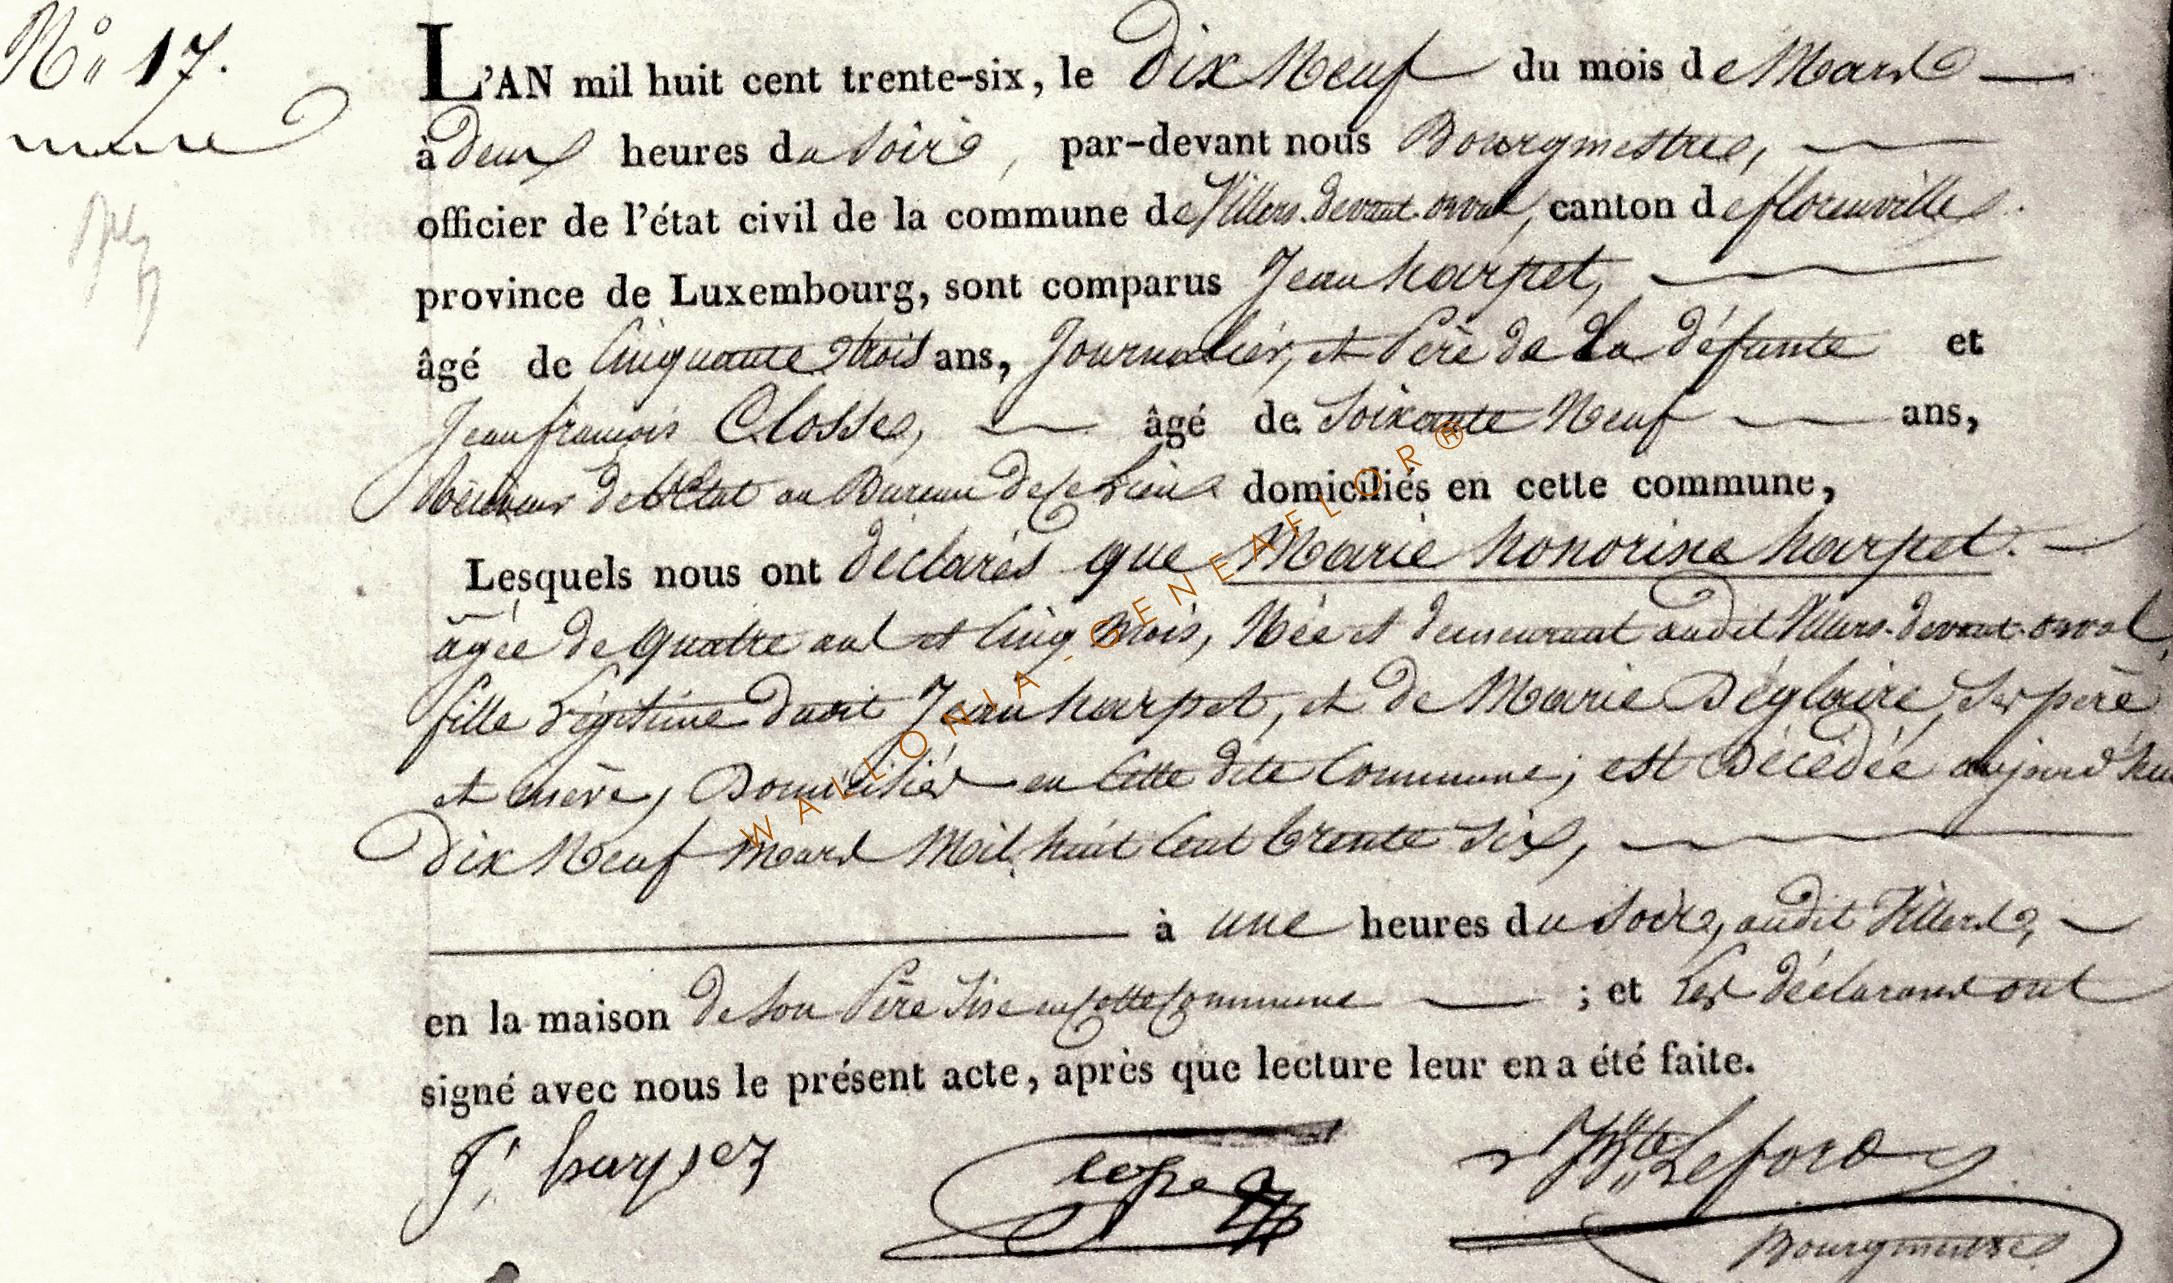 N° 17.
L'AN mil huit cent trente-six, le dix Neuf du mois de Mars
à deux heures du soir, par-devant nous Bourgmestre,
officier de l'état civil de la commune de Villers-devant-orval, canton de florenville.
province de Luxembourg, sont comparus Jean harpet,
âgé de Cinquante trois ans, Journalier, et Père de la défunte et
Jean françois Closse, âgé de Soixante Neuf ans,
de l'état au Bureau de ce Lieu domiciliés en cette commune,
Lesquels nous ont déclarés que Marie honorine harpet.
âgée de quatre ans et Cinq Mois, Née et demeurant audit Villers-devant-orval,
fille Légitime dudit Jean harpet, et de Marie Déglaire, Ses père
et mère, Domiciliés en Cette dite Commune; est Décédée aujourd'hui
Dix Neuf Mars Mil huit Cent trente Six,
à une heures du Soir, audit Villers,
en la maison de Son Père Sise en Cette Commune ; et Les déclarans ont
signé avec nous le présent acte, après que lecture leur en a été faite.
J. harpez closse Leford
Bourgmestre
WALLONIA-GENEAFLOR®